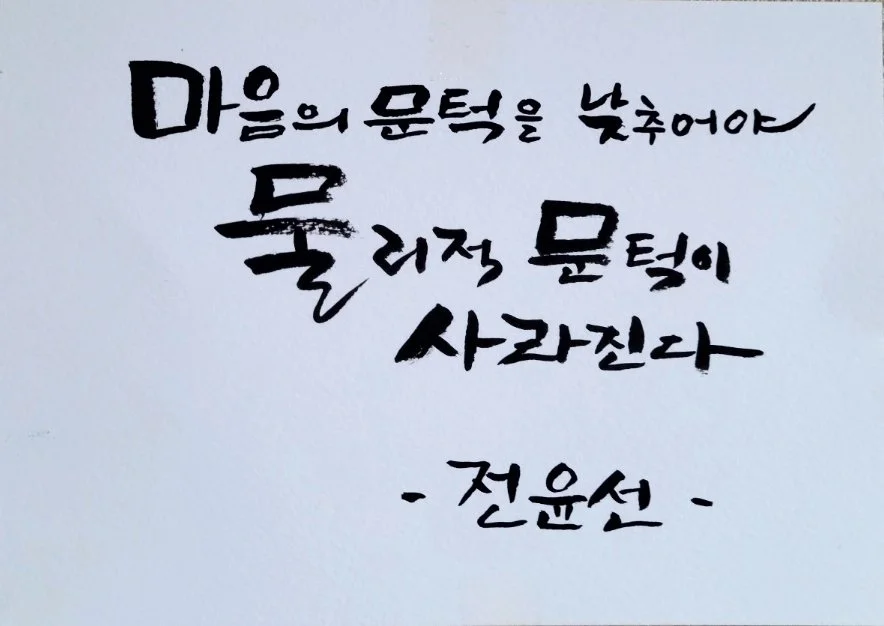 마음의 문턱을 낮추어야
물리적 문턱이
사라진다
- 전윤선 -